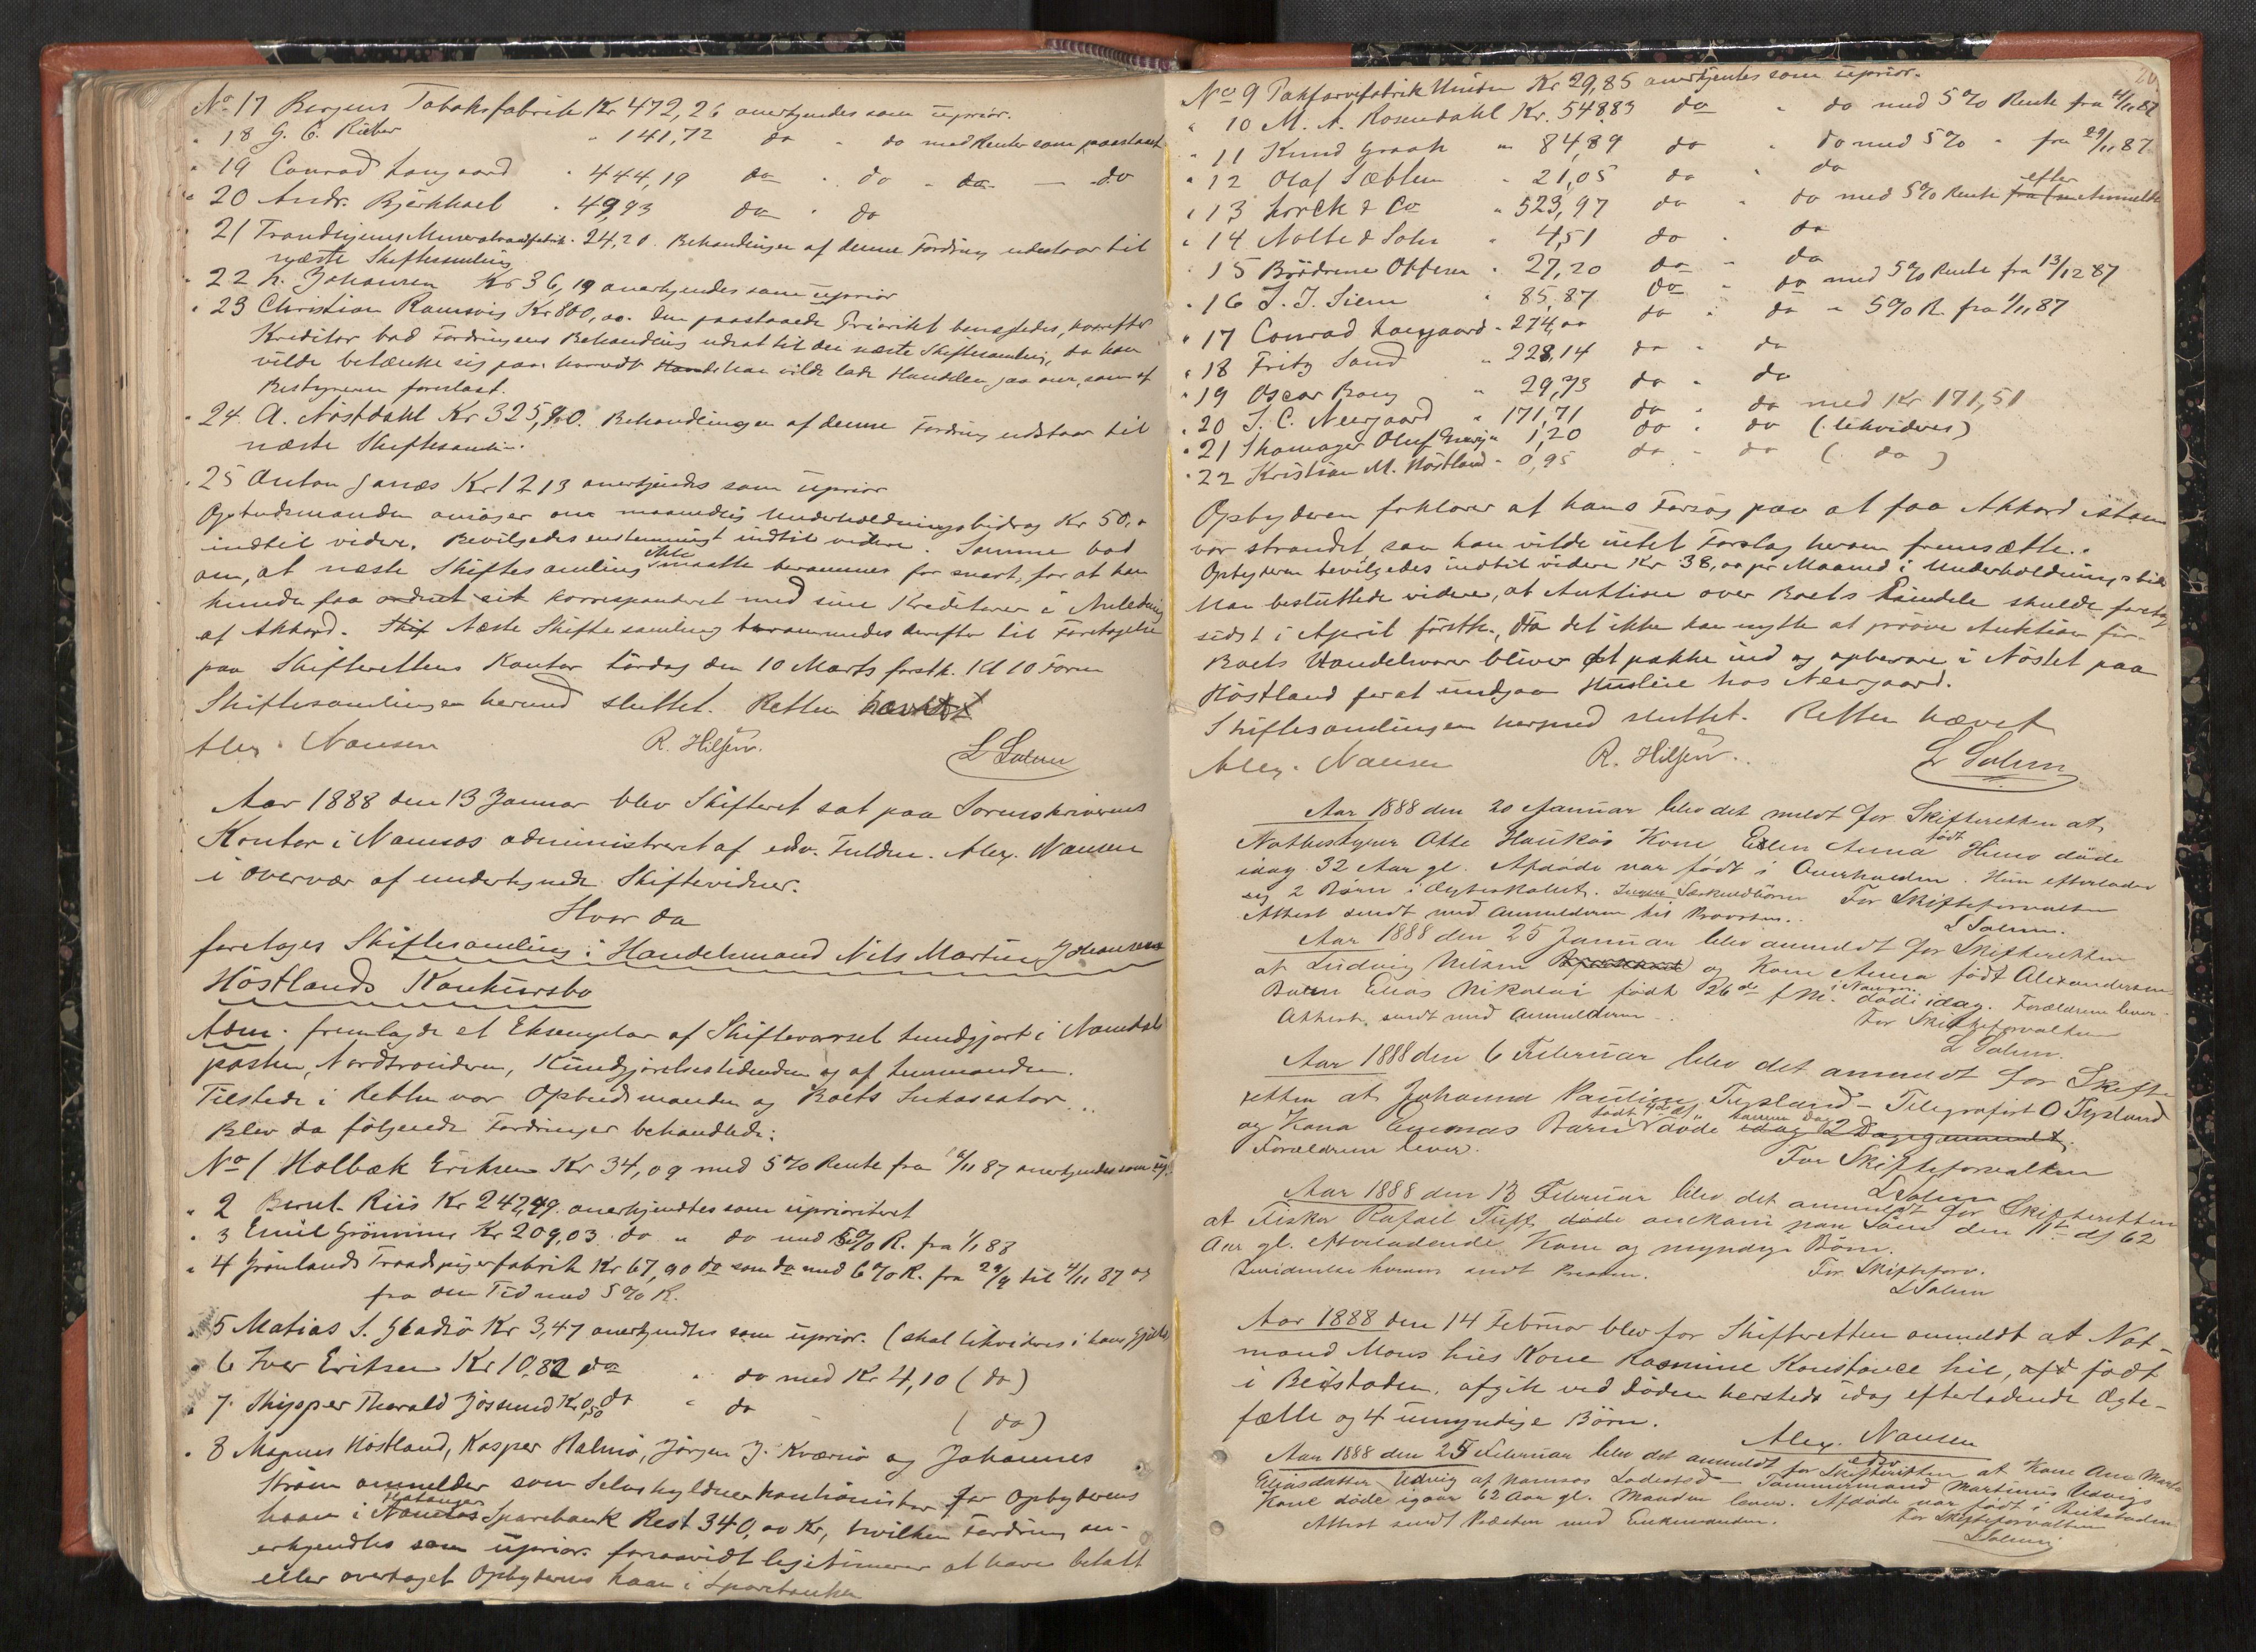 No 17 Bergens Tobaksfabrik Kr 472,26 anerkjendes som uprior.
" 18 G. C. Rieber " 141,72 do " do med Renter som paastaaet
" 19 Conrad Langaard " 444,19 do " do - do - do
" 20 Andr. Bjerkhoel " 49,93 do " do
" 21 Trondhjems Mineralvandfabrik - 24,20. Behandlingen af denne Fordring udstaar til
næste Skiftesamling
" 22 N. Johansen Kr 36,19 anerkjendes som uprior
" 23 Christian Ramsvig Kr 800,00. Den paastaaede Prioritet benægtedes, hvorefter
Kreditor bad Fordringens Behandling udsat til den næste Skiftesamling, da han
vilde betænke sig paa, hvorvidt han vilde lade Handelen gaa over, som af
Bestyreren foreslaaet.
" 24. A. Nöstdahl Kr 325,80. Behandlingen af denne Fordring udstaar til
næste Skiftesamling.
" 25 Anton Janæs Kr 12 13 anerkjendes som uprior
Opbudsmanden ansöger om maanedlig Underholdningsbidrag Kr 50,-
indtil videre. Bevilgedes enstemmigt indtil videre. Samme bad
om, at næste Skiftesamling ikke maatte berammes for snart, for at han
kunde faa ordnet sit korresponderet med sine Kreditorer i Anledning
af Akkord. Skif Næste Skiftesamling berammedes derefter til Foretagelse
paa Skifterettens Kontor Lördag den 10 Marts förstk. Kl 10 Form
Skiftesamlingen hermed sluttet. Retten hævet
Alex. Nansen R. Hiljen. L Salem
Aar 1888 den 13 Januar blev Skifteret sat paa Sorenskriverens
Kontor i Namsos administreret af edsv. Fuldm. Alex. Nansen
i Overvær af undertegnede Skiftevidner.
Hvor da
foretoges Skiftesamling i Handelsmand Nils Martin Johansens
Höstlands Konkursbo
Adm. fremlagde et Eksemplar af Skiftevarsel kundgjort i Namdals
posten, Nordtrönderen, Kundgjörelsestidenden og af Lensmanden.
Tilstede i Retten var Opbudsmanden og Boets Inkassator...
Blev da fölgende Fordringer behandlede:
No 1 Holbæk Eriksen Kr 34,09 med 5% Rente fra 16/11 87 anerkjendes som up.
" 2 Bernt Riis Kr 242,49. anerkjendtes som uprioriteret
" 3 Emil Grönning Kr 209,03 do " do med 5% R. fra 1/1 88
" 4 Grönlands Traadspigerfabrik Kr 67,90 do som do med 6% R. fra 29/9 til 4/11 87 og
fra den Tid med 5% R.
" 5 Matias S. Gladsö Kr 3,47 anerkjendtes som uprior. (skal likvideres i hans Gjæld)
" 6 Iver Eriksen Kr 10,82 do " do med Kr 4,10 (do)
" 7. Skipper Thorald Jössund Kr 0,50 do " do (do)
" 8 Magnus Höstland, Kasper Halmö, Jörgen J. Kværnö og Johannes
Ström anmelder som Selvskyldnerkautionister for Opbyderens
Laan i Namsos Sparebank Rest 340,00 Kr, hvilken Fordring an-
erkjendtes som uprior. forsaavidt legitimerer at have betalt
eller overtaget Opbyderens Laan i Sparebanken
20
No 9 Pakfarvefabrik Union Kr 29,85 anerkjentes som uprior.
" 10 M. A. Rosendahl Kr. 548,83 do " do med 5% Rente fra 4/11 87
" 11 Knud Graah " 84,89 do " do med 5% " fra 29/11 87
" 12 Olaf Sæhlen " 21,05 do " do
" 13 Lorck & Co " 523,97 do " do med 5% Rente efter Anmeldt
" 14 Nolte & Sohn " 4,51 do " do
" 15 Brödrene Ottesen " 27,20 do " do
" 16 S. J. Siem " 85,87 do " do med 5% Rente fra 13/12 87
" 17 Conrad Langaard " 274,00 do " do " 5% R. fra 1/11 87
" 18 Fritz Sand " 228,14 do " do
" 19 Oscar Bang " 29,73 do " do
" 20 I. C. Neergaard " 171,71 do " do med Kr 171,51
" 21 Skomager Oluf " 1,20 do " do (likvideres)
" 22 Kristian M. Höstland " 0,95 do " do (do)
Opbyderen forklarer at hans Forsög paa at faa Akkord istand
var strandet saa han vilde intet Forslag herom fremsætte..
Opbyderen bevilgedes indtil videre Kr 38,00 pr Maaned i Underholdningsbid
Man besluttede videre, at Auktion over Boets Eiendele skulde foretag
sidst i April förstk., da det ikke kan nytte at pröve Auktion för.
Boets Handelsvarer bliver at pakke ind og opbevare i Nöstet paa
Höstland for at undgaa Husleie hos Neergaard.
Skiftesamlingen hermed sluttet. Retten hævet
Alex. Nansen R. Hiljen. L Salem
Aar 1888 den 20 Januar blev det meldt for Skifteretten at
Notbestyrer Otto Haukös Kone Ellen Anna född Himo döde
idag 32 Aar gl. Afdöde var født i Overhalden. Hun efterlader
sig 2 Börn i Ægteskabet. Ingen Særkuldbörn For Skifteforvalteren
Attest sendt med Anmelderen til Provsten. L Salem.
Aar 1888 den 25 Januar blev anmeldt for Skifteretten
at Ludvig Nilsen og Kone Anna født Alexandersen
Barn Elias Nikolai født 26de f M. i Namsos döde idag. Forældrene lever.
Attest sendt med Anmelderen.. For Skifteforvalteren
L Salem.
Aar 1888 den 6 Februar blev det anmeldt for Skifte
retten at Johanna Pauline Tysland - Telegrafist O Tysland
og Kona Emmas Barn født 4de ds. döde samme Dag idag 2 Dage gammelt.
Forældrene lever. For Skifteforvalteren
L Salem
Aar 1888 den 13 Februar blev det anmeldt for Skifteretten
at Fisker Rafail Tuft döde omkom paa Söen den 11te ds 62
Aar gl. efterladende Kone og myndige Börn.
herom sendt Presten. For Skifteforv.
L Salem
Aar 1888 den 14 Februar blev for Skifteretten anmeldt at Not-
mand Mons Lies Kone Rasmine Konstance Lie, afd født
i Beitstaden, afgik ved Döden hersteds idag efterladende Ægte-
fælle og 4 umyndige Börn.
Alex. Nansen
edsv
Aar 1888 den 25 Februar blev det anmeldt for Skifteretten at Kone Ane Marta
Eliasdatter Udvig af Namsos Ladested - Tömmermand Martinus Udvigs
Kone döde igaar 62 Aar gl. Manden lever. Afdöde var født i Beitstaden
Attest sendt Præsten med Enkemanden. For Skifteforvalteren
L Salem